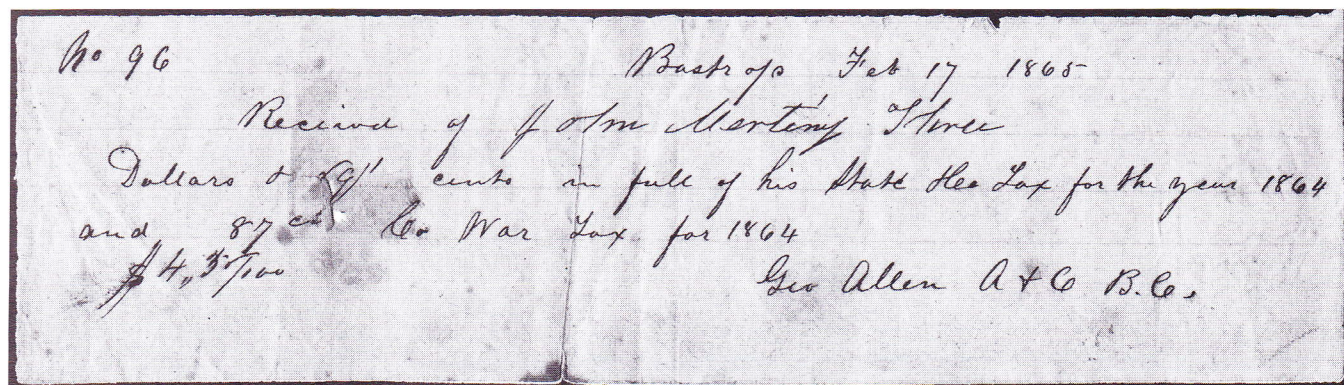 No 96 Bastrop Feb 17 1865
Recievd of John Mertink Three
Dollars & cents in full of his State & Co Tax for the year 1864
and 87 cts Co War Tax for 1864
$4,35/100
Geo Allen A & C B.C.